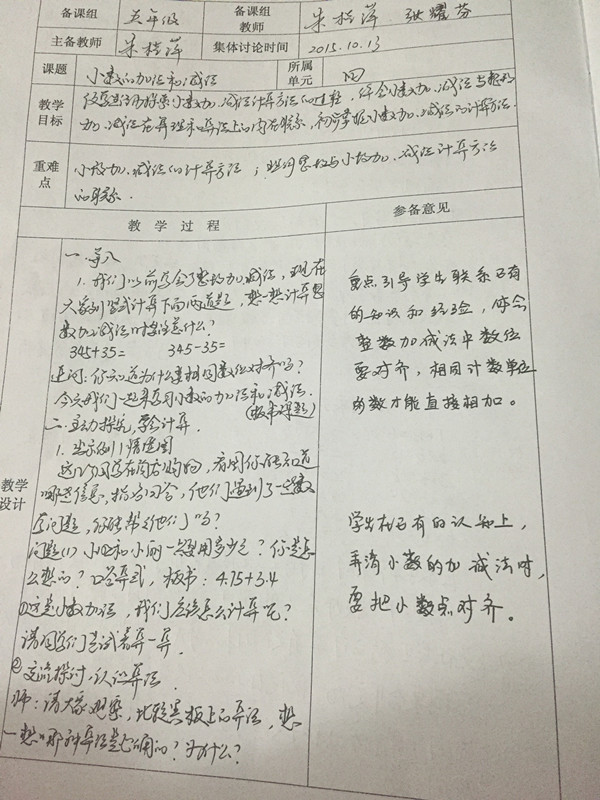 备课组 五年级 备课组教师 朱桂萍 张耀芬
主备教师 朱桂萍 集体讨论时间 2015.10.13
课题 小数的加法和减法 所属单元 四
教学目标 使学生进一步探索小数加、减法计算方法的过程，体会小数加、减法与整数
加、减法在算理和算法上的内在联系，初步掌握小数加、减法的计算方法。
重难点 小数加、减法的计算方法；整数与小数加、减法计算方法
的联系.
教学过程 参备意见
教学设计
一.导入
1.我们以前学会了整数加、减法，现在
大家尝试计算下面两道题，想一想计算整
数加、减法时要注意什么？
345+35= 345-35=
追问：你知道为什么要相同数位对齐吗？
今天我们一起来学习小数的加法和减法.
(板书课题)
二.主动探究，学会计算.
1.出示例1情境图
这几个同学在商店购物，看图你能知道
哪些信息，指名回答，他们遇到了一些数
学问题，你能帮帮他们吗？
问题(1) 小明和小丽一共要用多少元？你是怎
么想的？口答算式，板书：4.75+3.4
①这是小数加法，我们应该怎么计算呢？
请同学们尝试着算一算.
②交流探讨，认识算法.
师：请大家观察，比较黑板上的算法，想
一想哪种算法是正确的？为什么？
重点引导学生联系已有
的知识和经验，体会
整数加减法中数位
要对齐，相同计数单位
的数才能直接相加。
学生在已有的认知上，
弄清小数的加减法时，
要把小数点对齐。